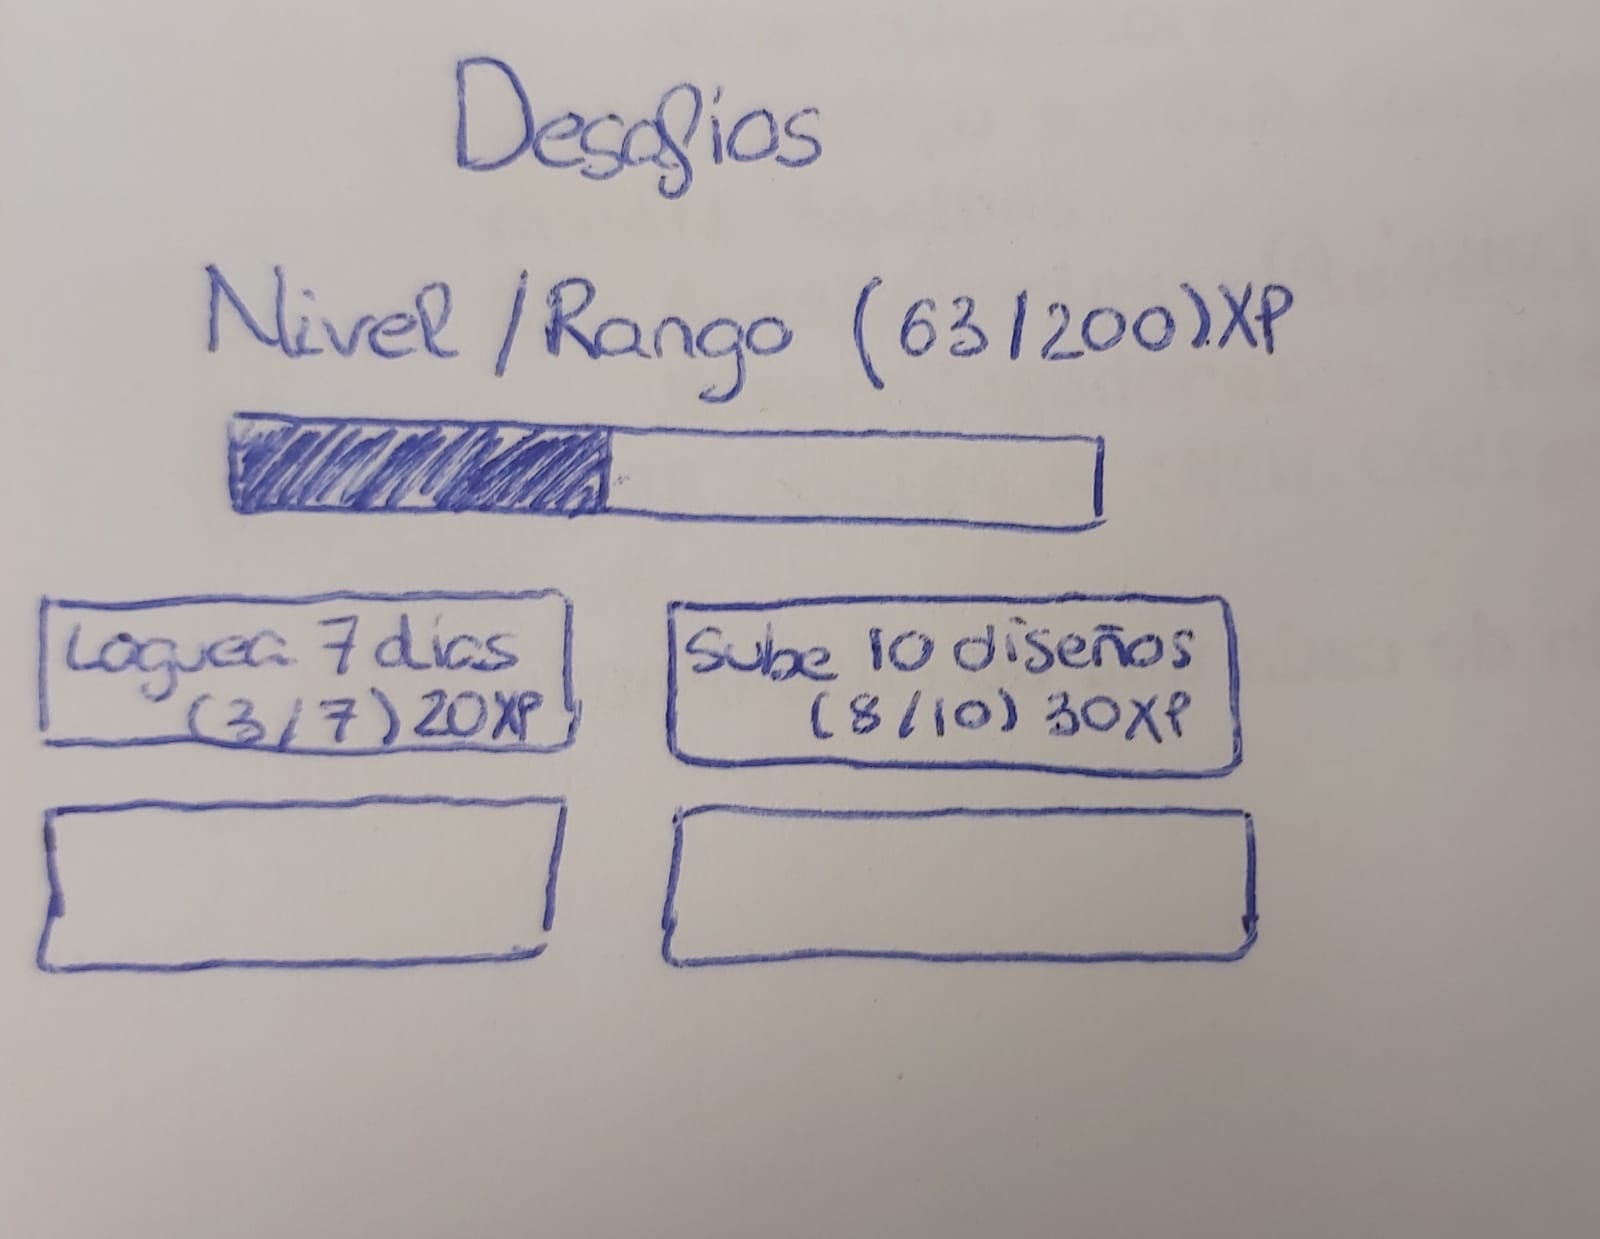 Desafios
Nivel / Rango (63/200) XP
Loguea 7 dias
(3/7) 20XP
Sube 10 diseños
(8/10) 30XP